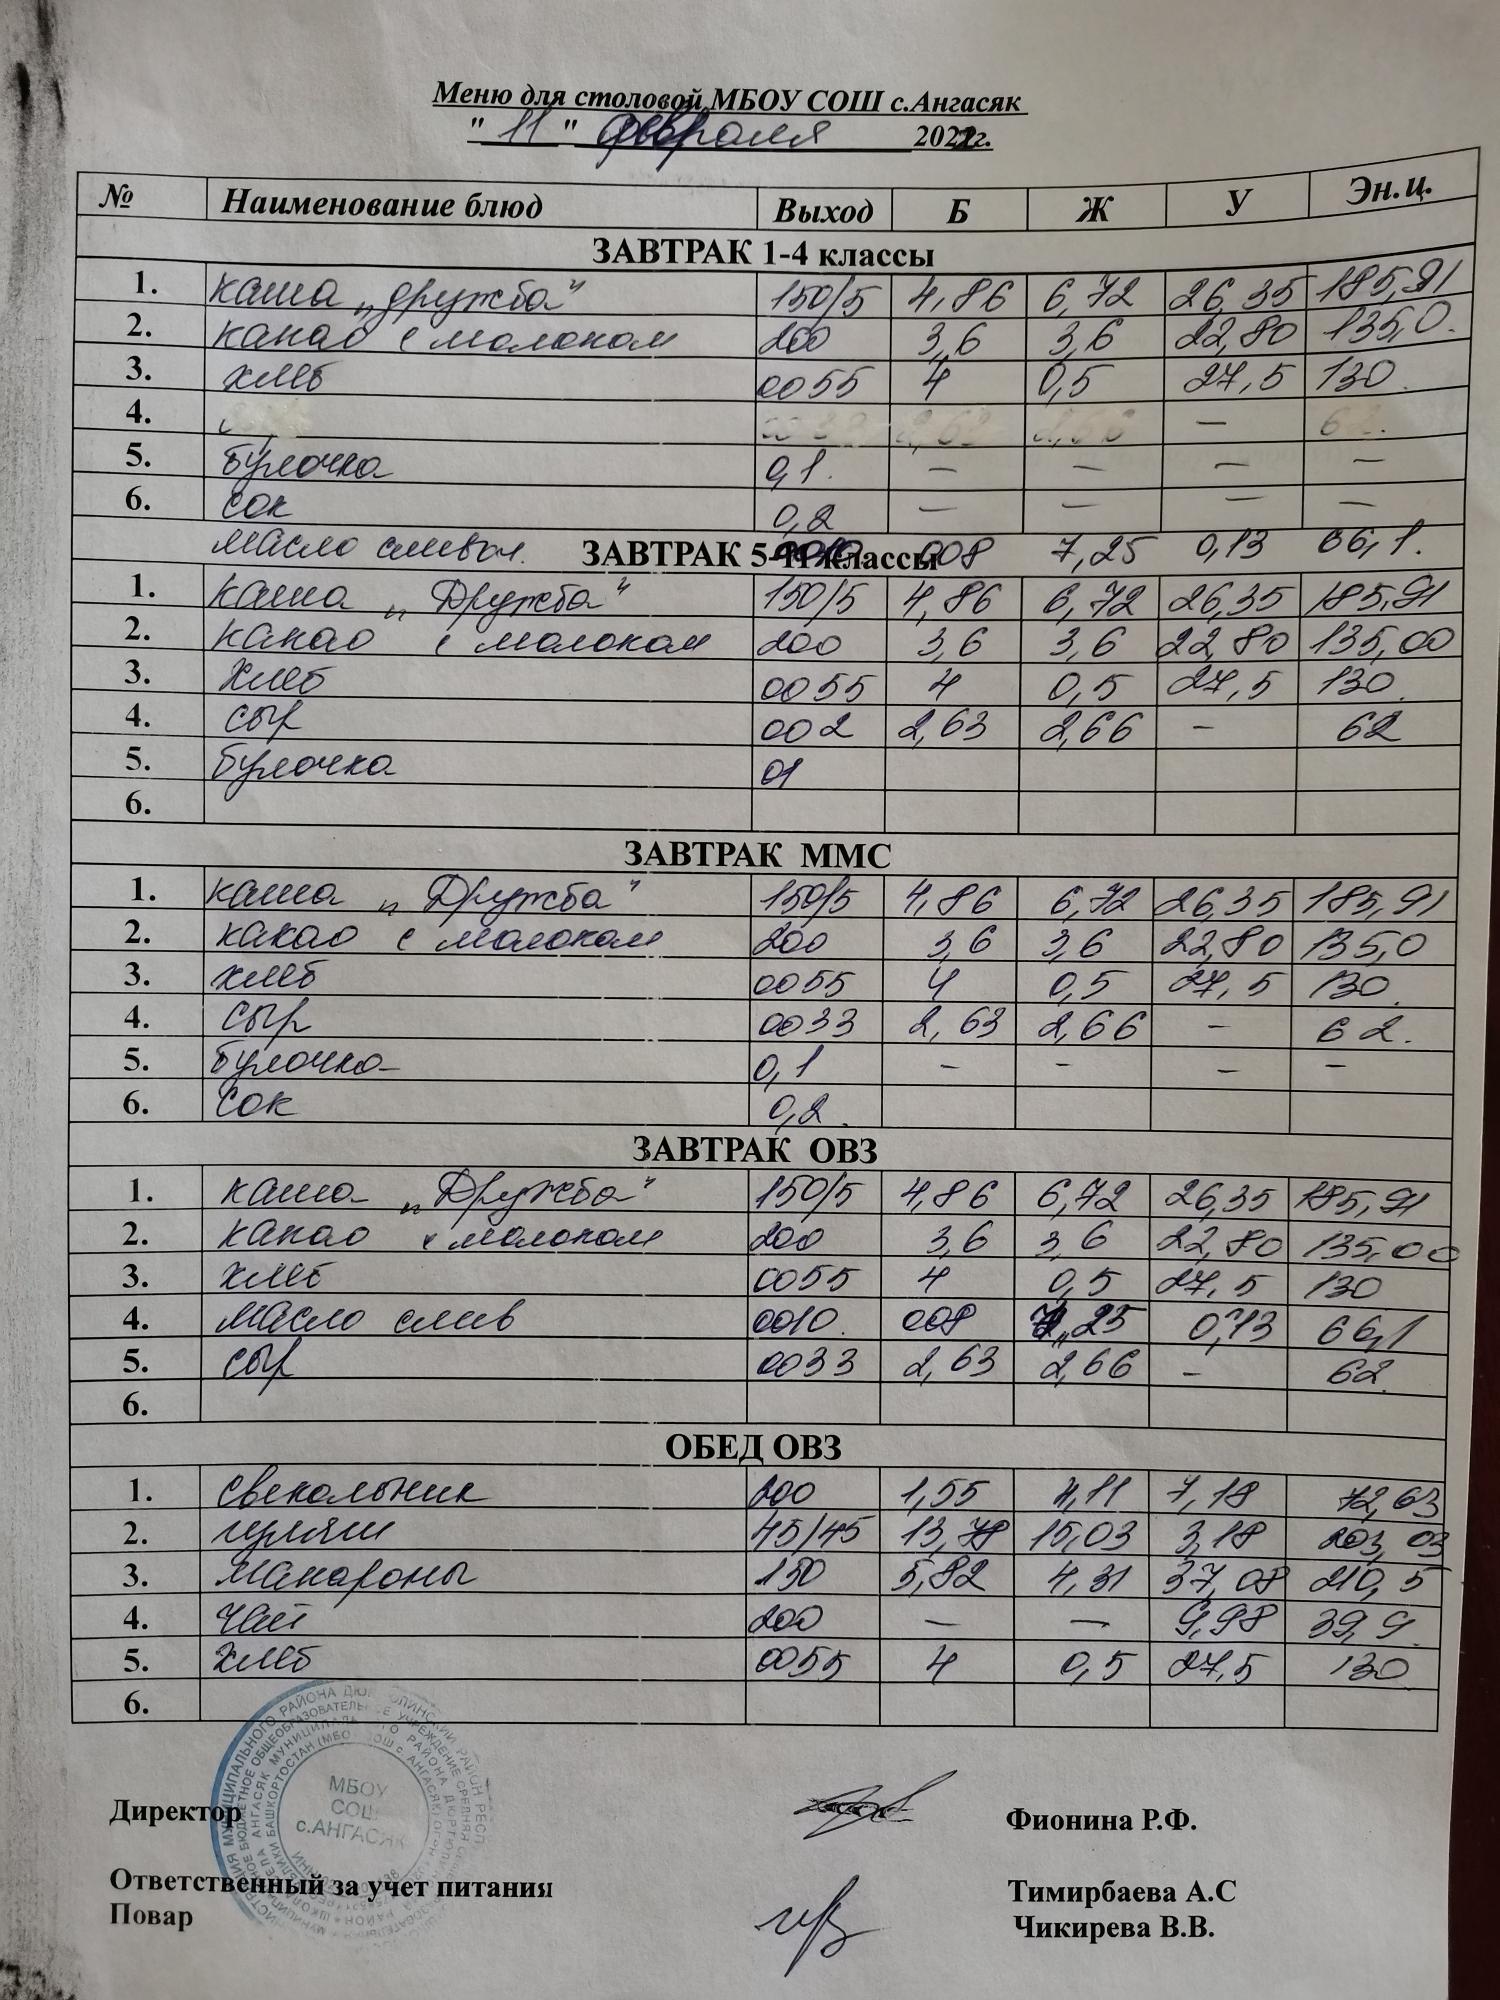 Меню для столовой МБОУ СОШ с.Ангасяк
"11" февраля 2022г.
№ Наименование блюд Выход Б Ж У Эн.ц.
ЗАВТРАК 1-4 классы
1. каша „дружба" 150/5 4,86 6,72 26,35 185,91
2. какао с молоком 200 3,6 3,6 22,80 135,0.
3. хлеб 0055 4 0,5 27,5 130.
4. 0033 2,63 2,66 – 62.
5. булочка 0,1. – – – –
6. сок 0,2 – – – –
масло сливоч. 0010 008 7,25 0,13 66,1.
ЗАВТРАК 5-11 классы
1. каша „Дружба" 150/5 4,86 6,72 26,35 185,91
2. какао с молоком 200 3,6 3,6 22,80 135,00
3. Хлеб 0055 4 0,5 27,5 130.
4. сыр 002 2,63 2,66 – 62
5. булочка 01
6.
ЗАВТРАК ММС
1. каша „Дружба" 150/5 4,86 6,72 26,35 185,91
2. какао с молоком 200 3,6 3,6 22,80 135,0
3. хлеб 0055 4 0,5 27,5 130.
4. сыр 0033 2,63 2,66 – 62.
5. булочка 0,1 – – – –
6. сок 0,2.
ЗАВТРАК ОВЗ
1. каша „Дружба" 150/5 4,86 6,72 26,35 185,91
2. какао с молоком 200 3,6 3,6 22,80 135,00
3. хлеб 0055 4 0,5 27,5 130
4. масло слив 0010. 008 7,25 0,13 66,1
5. сыр 0033 2,63 2,66 – 62.
6.
ОБЕД ОВЗ
1. свекольник 200 1,55 4,11 7,18 72,63
2. гуляш 45/45 13,78 15,03 3,18 203,03
3. макароны 150 5,82 4,31 37,08 210,5
4. чай 200 – – 9,98 39,9.
5. хлеб 0055 4 0,5 27,5 130
6.
МБОУ
СОШ
с.АНГАСЯК
Директор Фионина Р.Ф.
Ответственный за учет питания Тимирбаева А.С
Повар Чикирева В.В.